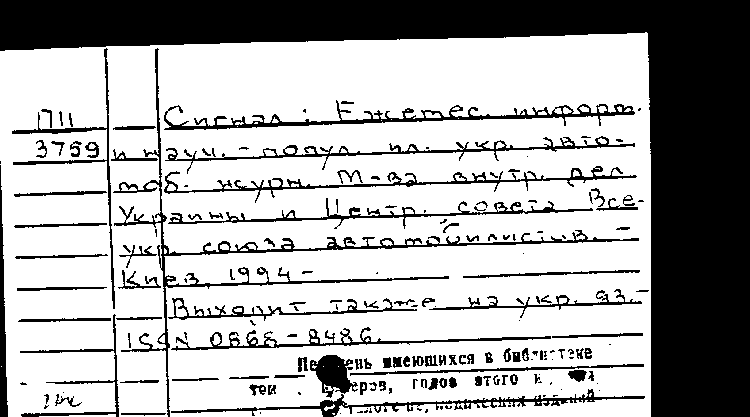 П11
3759
Сигнал: Ежемес. информ.
и науч.-попул. ил. укр. авто-
моб. журн. М-ва внутр. дел
Украины и Центр. совета Все-
укр. союза автомобилистов. –
Киев, 1994 –
Выходит также на укр. яз. –
ISSN 0868-8486.
имеющихся в библиотеке
годов этого